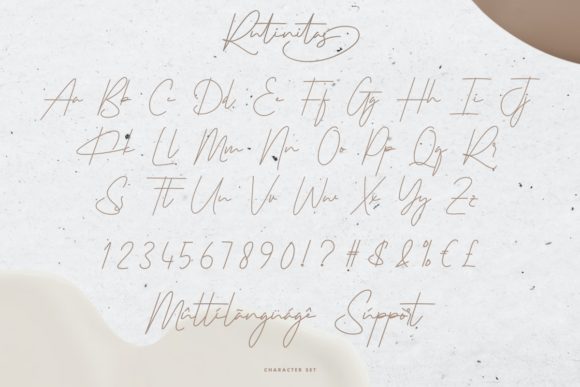 Rutinitas
Aa Bb Cc Dd Ee Ff Gg Hh Ii Jj
Kk Ll Mm Nn Oo Pp Qq Rr
Ss Tt Uu Vv Ww Xx Yy Zz
1234567890!?#$&%€£
Mûltílāngüágê Súppört
CHARACTER SET